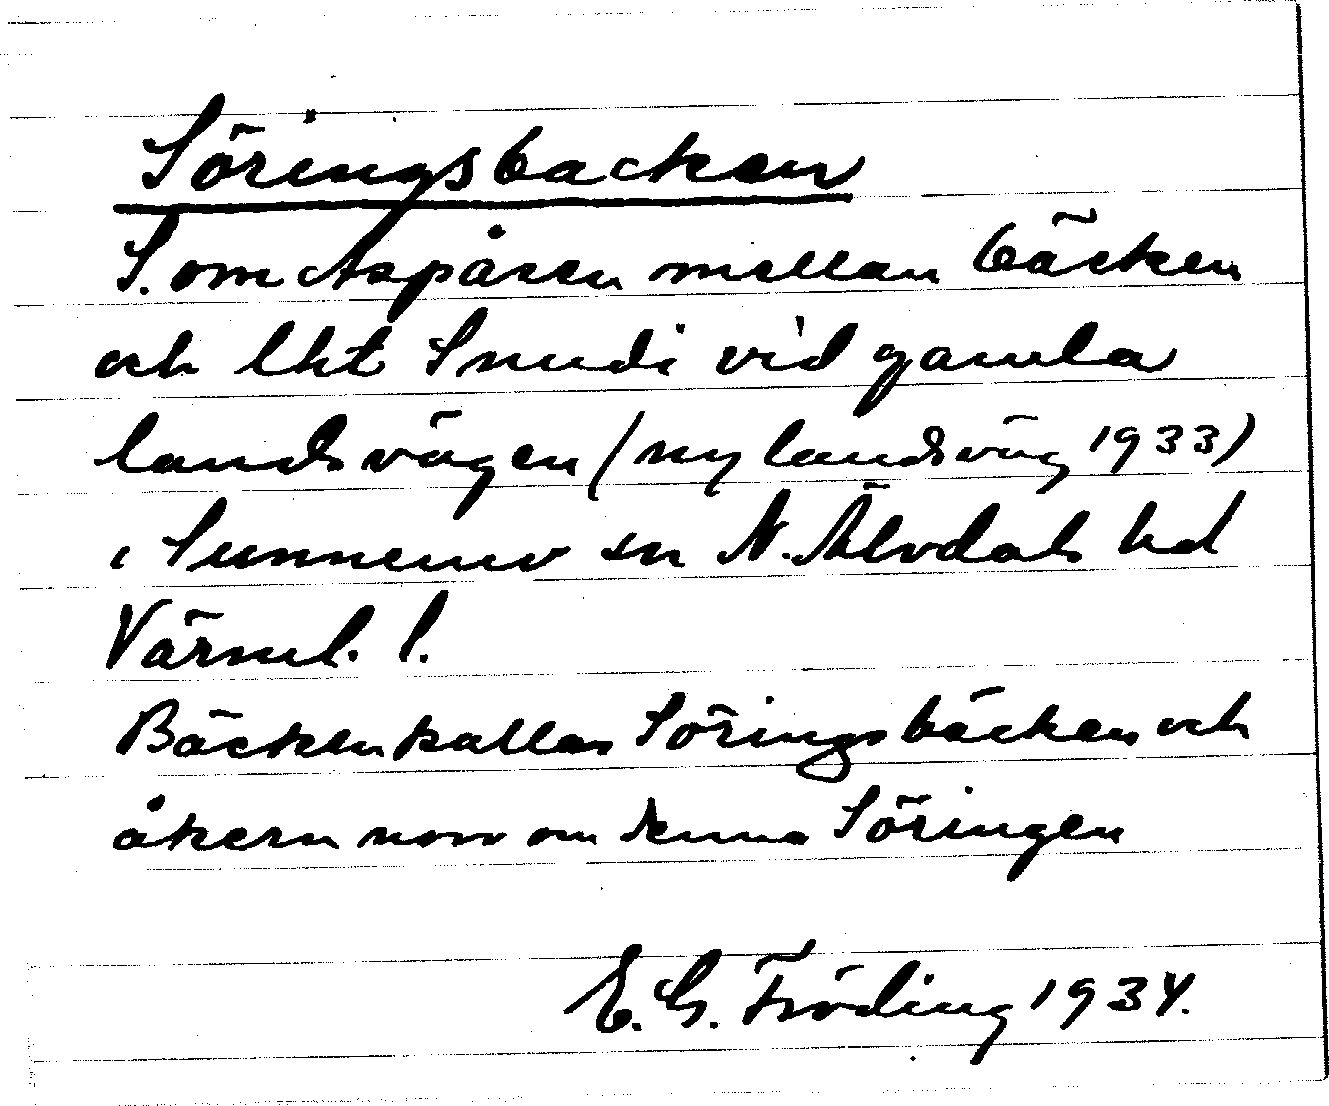 Söringsbacken
S. om Aspåsen mellan bäcken
och lht Snudi vid gamla
landsvägen (ny landsväg 1933)
i Sunnemo sn N. Älvdals hd
Värml. l.
Bäcken kallas Söringsbäcken och
åkern norr om denna Söringen
E. G. Fröding 1934.